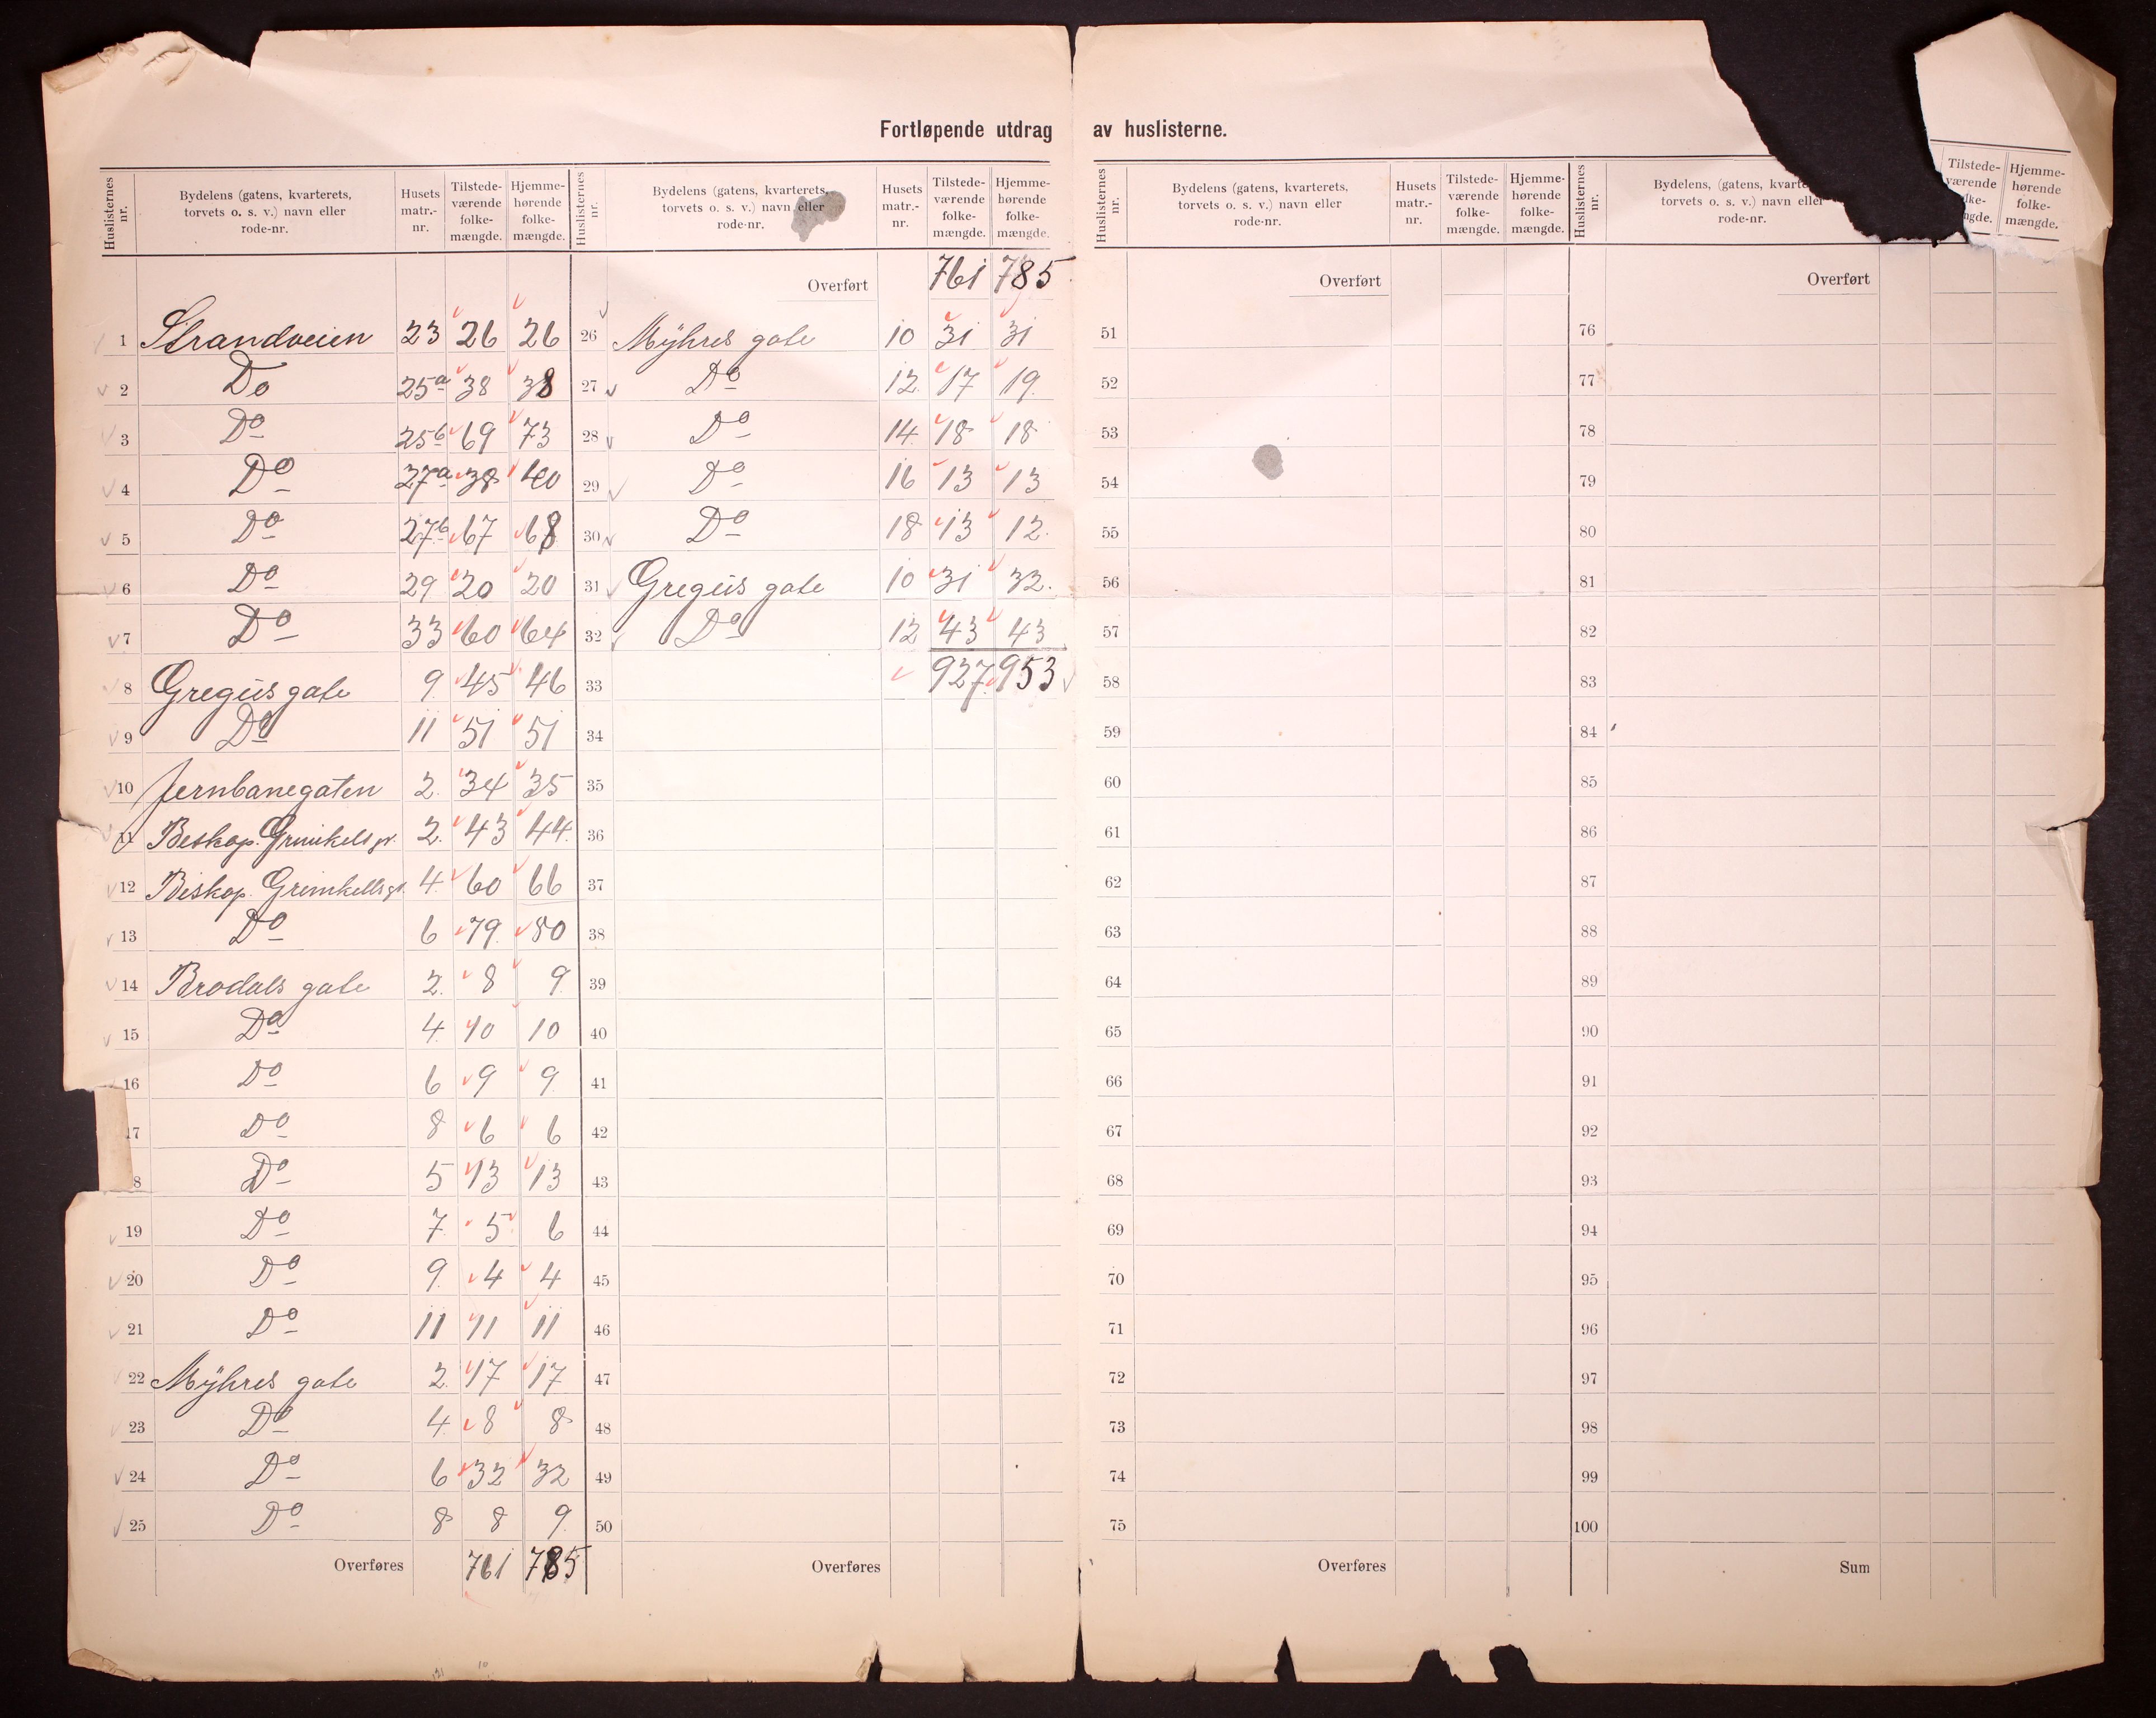 Fortløpende utdrag av huslisterne.
Huslisternes nr. Bydelens (gatens, kvarterets, torvets o. s. v.) navn eller rode-nr. Husets matr.-nr. Tilstede-værende folke-mængde. Hjemme-hørende folke-mængde.
1 Strandveien 23 26 26
2 Do 25a 38 38
3 Do 25b 69 73
4 Do 27a 38 40
5 Do 27b 67 68
6 Do 29 20 20
7 Do 33 60 64
8 Gregus gate 9 45 46
9 Do 11 51 51
10 Jernbanegaten 2. 34 35
11 Biskop. Grimkels gt. 2. 43 44.
12 Biskop. Grimkells gt. 4. 60 66
13 Do 6 79. 80
14 Brodals gate 2. 8 9.
15 Do 4. 10 10
16 Do 6 9 9.
17 Do 8 6 6
8 Do 5 13 13
19 Do 7. 5 6
20 Do 9. 4 4
21 Do 11 11 11
22 Myhres gate 2. 17 17
23 Do 4. 8 8
24 Do 6 32 32
25 Do 8 8 9.
Overføres 761 785
Huslisternes nr. Bydelens (gatens, kvarterets, torvets o. s. v.) navn eller rode-nr. Husets matr.-nr. Tilstede-værende folke-mængde. Hjemme-hørende folke-mængde.
Overført 761 785
26 Myhres gate 10 31 31
27 Do 12. 17 19.
28 Do 14. 18 18
29 Do 16 13 13
30 Do 18 13 12.
31 Gregus gate 10 31 32.
32 Do 12 43 43
33 927 953
34
35
36
37
38
39
40
41
42
43
44
45
46
47
48
49
50
Overføres
Huslisternes nr. Bydelens (gatens, kvarterets, torvets o. s. v.) navn eller rode-nr. Husets matr.-nr. Tilstede-værende folke-mængde. Hjemme-hørende folke-mængde.
Overført
51
52
53
54
55
56
57
58
59
60
61
62
63
64
65
66
67
68
69
70
71
72
73
74
75
Overføres
Huslisternes nr. Bydelens, (gatens, kvarte torvets o. s. v.) navn eller rode-nr. Tilstede-værende lke-ngde. Hjemme-hørende folke-mængde.
Overført
76
77
78
79
80
81
82
83
84
85
86
87
88
89
90
91
92
93
94
95
96
97
98
99
100
Sum